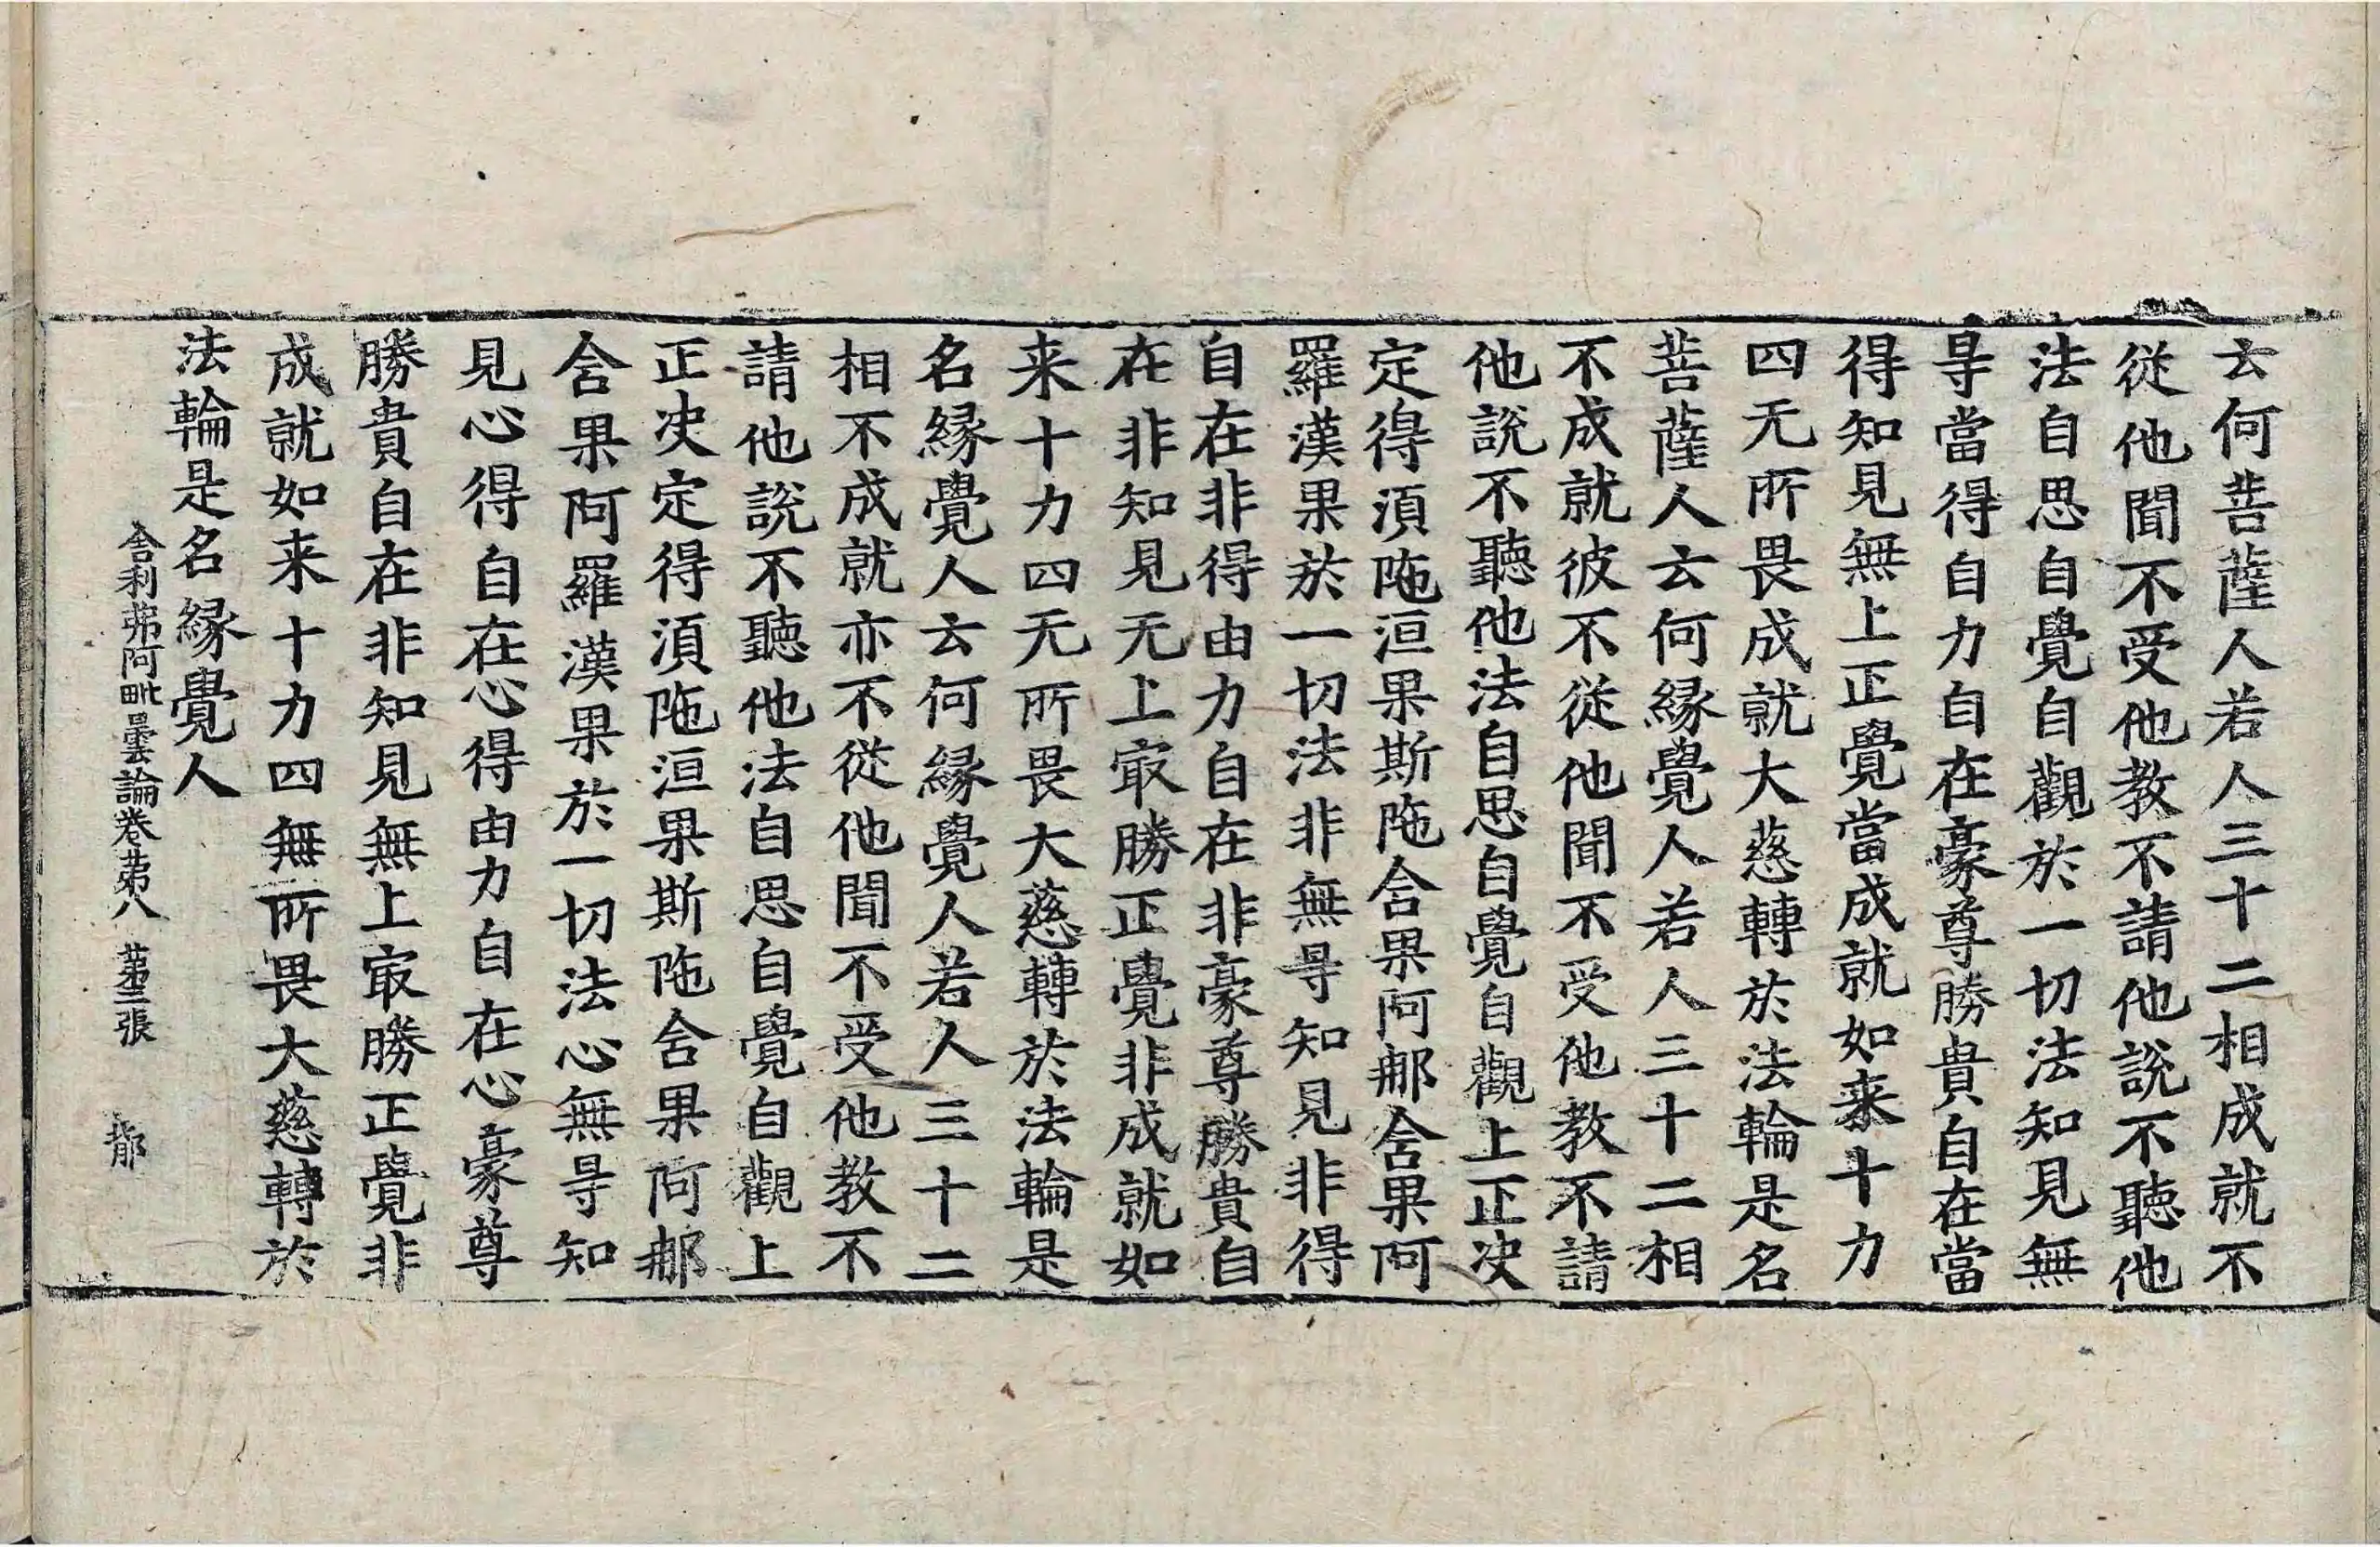 云何菩薩人若人三十二相成就不
從他聞不受他教不請他說不聽他
法自思自覺自觀於一切法知見無
㝵當得自力自在豪尊勝貴自在當
得知見無上正覺當成就如来十力
四无所畏成就大慈轉於法輪是名
菩薩人云何緣覺人若人三十二相
不成就彼不從他聞不受他教不請
他說不聽他法自思自覺自觀上正决
定得湏陁洹果斯陁含果阿那含果阿
羅漢果於一切法非無㝵知見非得
自在非得由力自在非豪尊勝貴自
在非知見无上㝡勝正覺非成就如
来十力四无所畏大慈轉於法輪是
名緣覺人云何緣覺人若人三十二
相不成就亦不從他聞不受他教不
請他說不聽他法自思自覺自觀上
正决定得湏陁洹果斯陁含果阿那
含果阿羅漢果於一切法心無㝵知
見心得自在心得由力自在心豪尊
勝貴自在非知見無上㝡勝正覺非
成就如来十力四無所畏大慈轉於
法輪是名緣覺人
舍利弗阿毗曇論卷苐八 苐三張